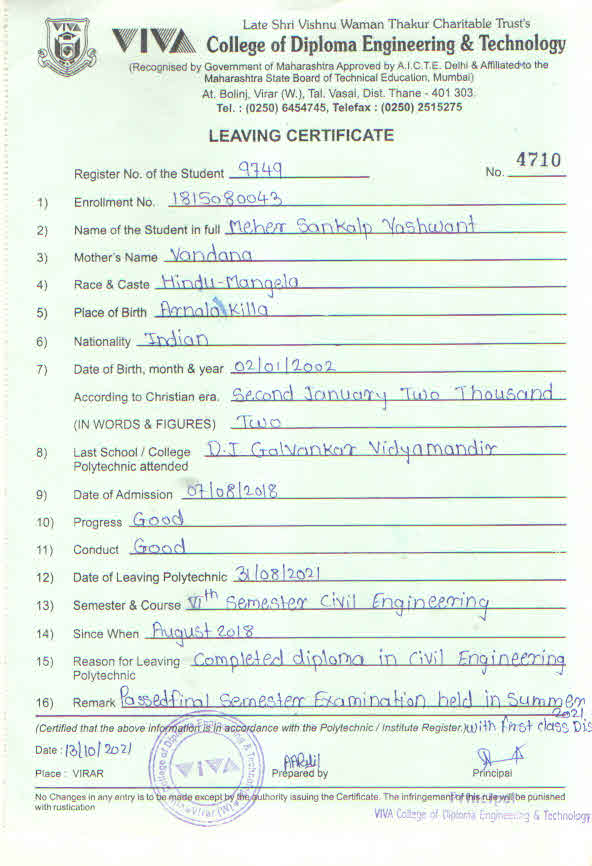 Late Shri Vishnu Waman Thakur Charitable Trust's
VIVA College of Diploma Engineering & Technology
(Recognised by Government of Maharashtra Approved by A.I.C.T.E. Delhi & Affiliated to the
Maharashtra State Board of Technical Education, Mumbai)
At. Bolinj, Virar (W.), Tal. Vasai, Dist. Thane - 401 303.
Tel. : (0250) 6454745, Telefax : (0250) 2515275
LEAVING CERTIFICATE
Register No. of the Student 9749 No. 4710
1) Enrollment No. 1815080043
2) Name of the Student in full Meher Sankalp Yashwant
3) Mother's Name Vandana
4) Race & Caste Hindu-Mangela
5) Place of Birth Arnala Killa
6) Nationality Indian
7) Date of Birth, month & year 02/01/2002
According to Christian era. Second January Two Thousand
(IN WORDS & FIGURES) Two
8) Last School / College D.J Galvankar Vidyamandir
Polytechnic attended
9) Date of Admission 07/08/2018
10) Progress Good
11) Conduct Good
12) Date of Leaving Polytechnic 31/08/2021
13) Semester & Course VIth Semester Civil Engineering
14) Since When August 2018
15) Reason for Leaving Completed diploma in Civil Engineering
Polytechnic
16) Remark Passed final Semester Examination held in Summer
2021
(Certified that the above information is in accordance with the Polytechnic / Institute Register.) with first class Dis
Date : 13/10/2021
Place : VIRAR Prepared by Principal
No Changes in any entry is to be made except by the authority issuing the Certificate. The infringement of this rule will be punished
with rustication
Principal
VIVA College of Diploma Engineering & Technology
College of Diploma Engineering & Technology
VIVA
Virar (W)